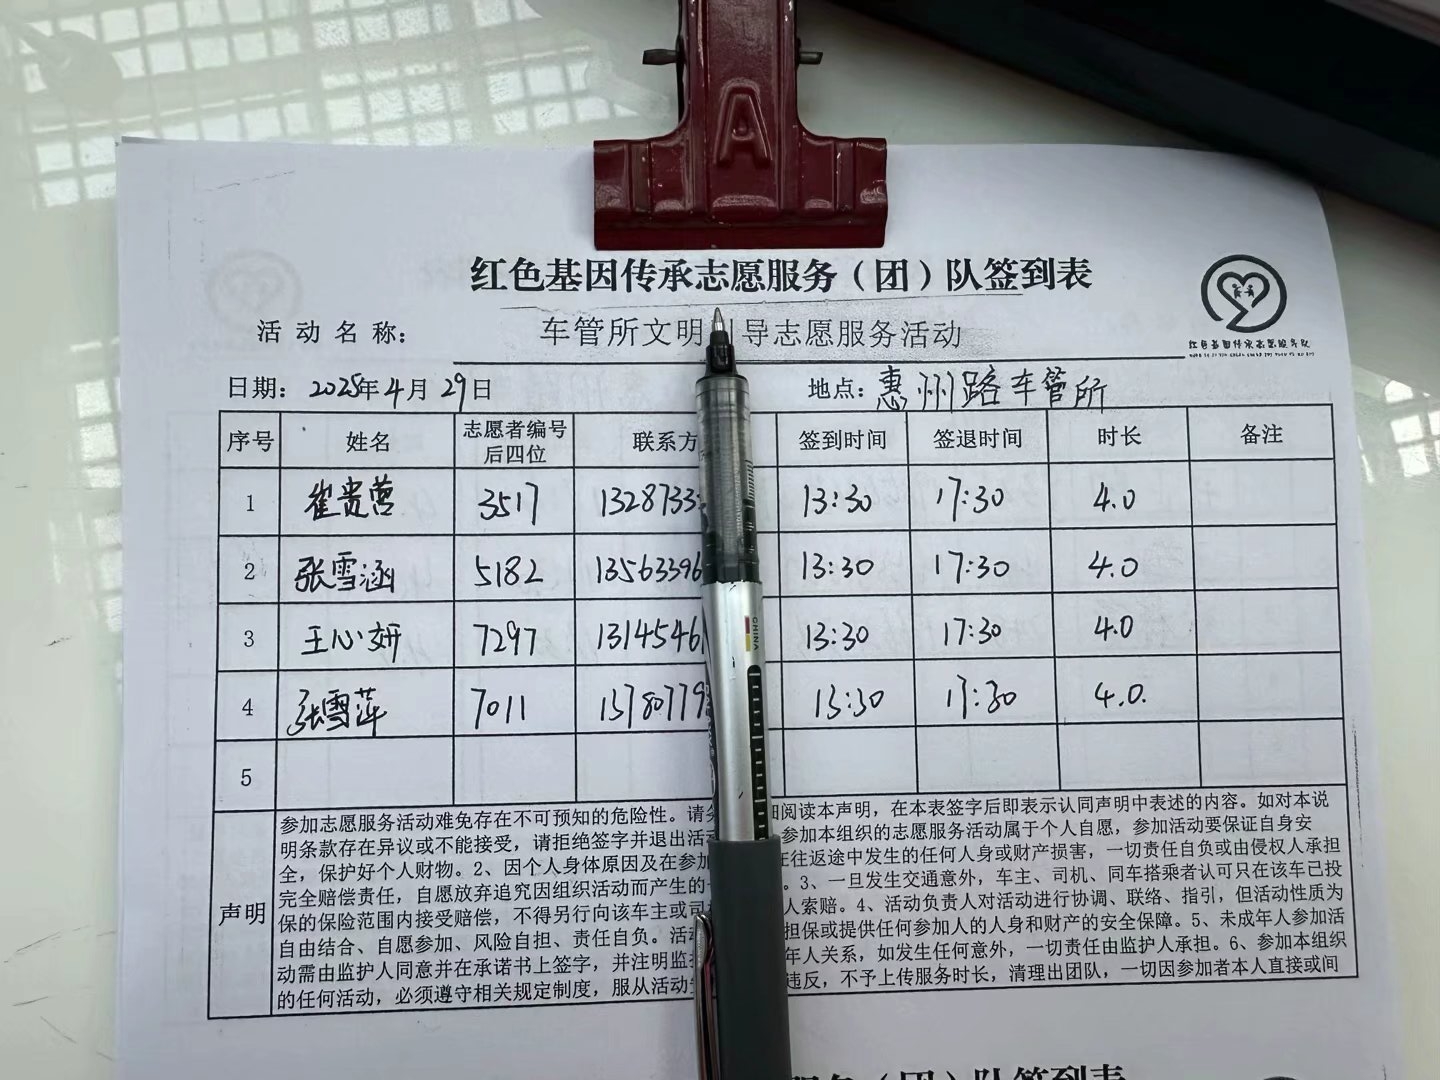 A
红色基因传承志愿服务（团）队签到表
红色基因传承志愿服务队
活动名称： 车管所文明 导志愿服务活动
日期：2025年4月29日 地点：惠州路车管所
序号 姓名 志愿者编号后四位 联系方 签到时间 签退时间 时长 备注
1 崔贵营 3517 1328733 13:30 17:30 4.0
2 张雪涵 5182 13563396 13:30 17:30 4.0
3 王心妍 7297 1314546 13:30 17:30 4.0
4 张雪萍 7011 1378077 13:30 17:30 4.0.
5
声明
参加志愿服务活动难免存在不可预知的危险性。请 阅读本声明，在本表签字后即表示认同声明中表述的内容。如对本说
明条款存在异议或不能接受，请拒绝签字并退出活 参加本组织的志愿服务活动属于个人自愿，参加活动要保证自身安
全，保护好个人财物。2、因个人身体原因及在参加 往返途中发生的任何人身或财产损害，一切责任自负或由侵权人承担
完全赔偿责任，自愿放弃追究因组织活动而产生的 。3、一旦发生交通意外，车主、司机、同车搭乘者认可只在该车已投
保的保险范围内接受赔偿，不得另行向该车主或司 人索赔。4、活动负责人对活动进行协调、联络、指引，但活动性质为
自由结合、自愿参加、风险自担、责任自负。活 担保或提供任何参加人的人身和财产的安全保障。5、未成年人参加活
动需由监护人同意并在承诺书上签字，并注明监 年人关系，如发生任何意外，一切责任由监护人承担。6、参加本组织
的任何活动，必须遵守相关规定制度，服从活动 违反，不予上传服务时长，清理出团队，一切因参加者本人直接或间
CHINA
服务（团）队签到表